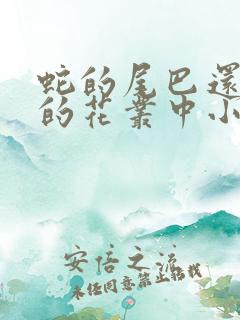 蛇的尾巴還
的花叢中小
安倍之流
未经同意禁止转载